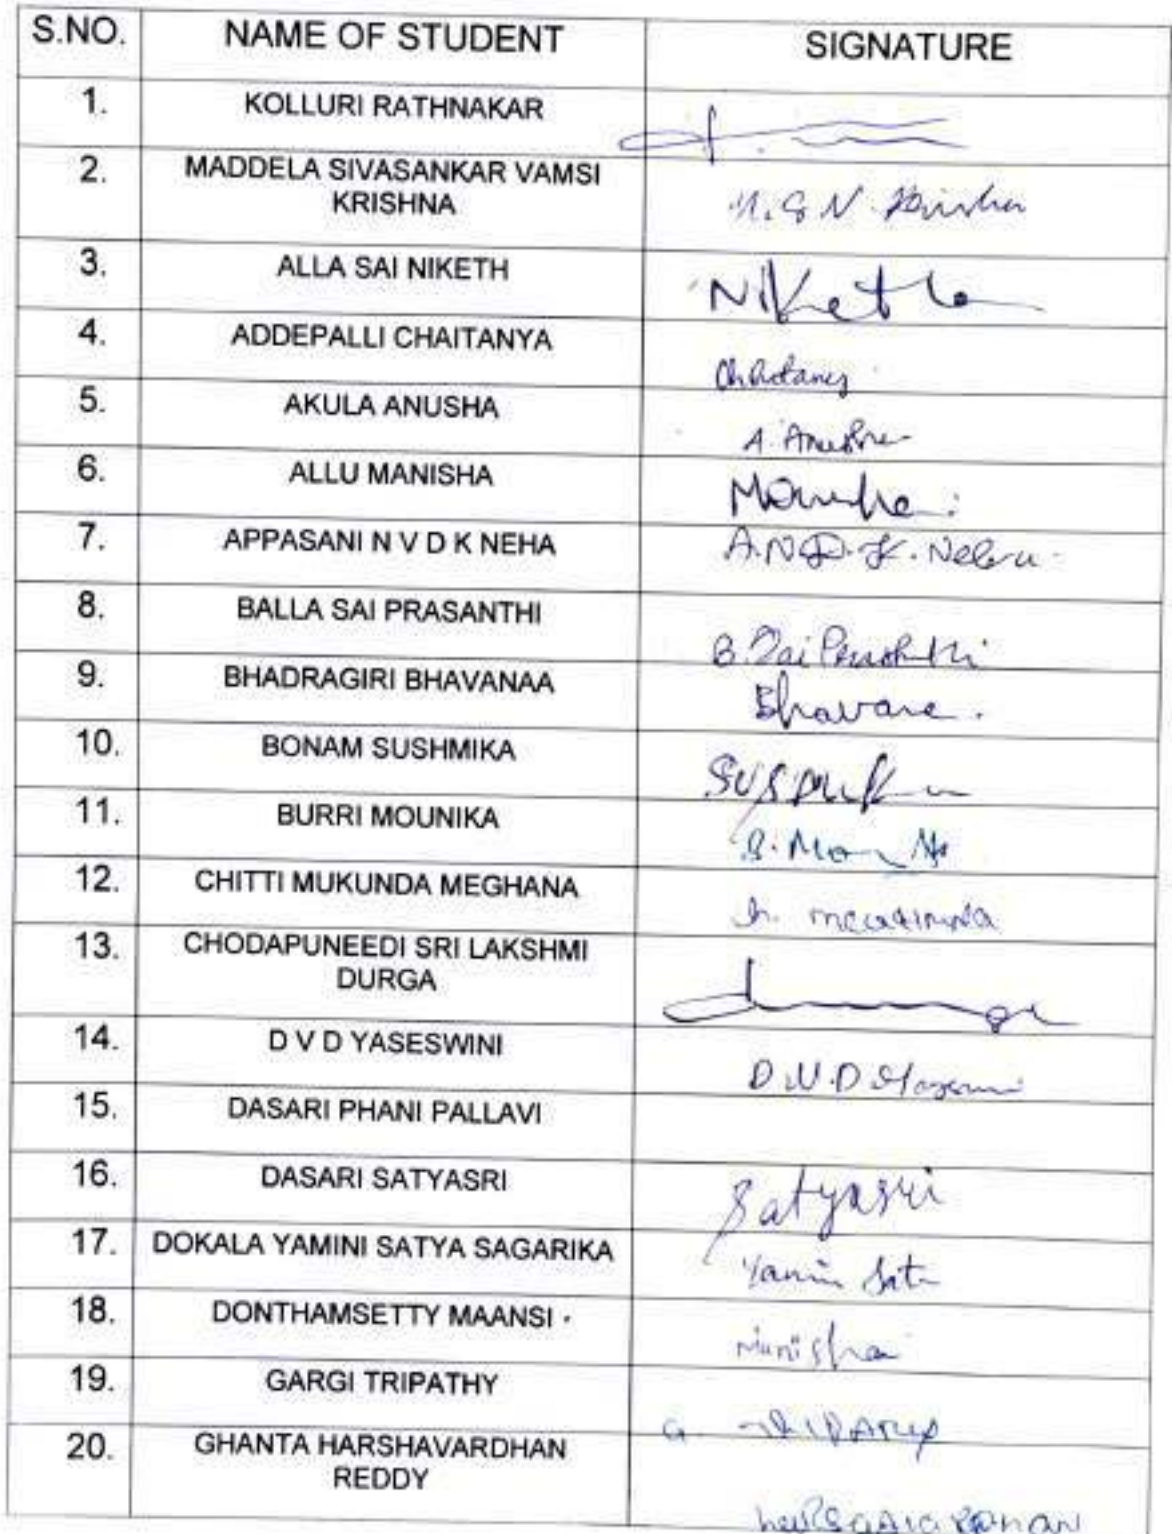 S.NO. NAME OF STUDENT SIGNATURE
1. KOLLURI RATHNAKAR
2. MADDELA SIVASANKAR VAMSI
KRISHNA
3. ALLA SAI NIKETH Niketh
4. ADDEPALLI CHAITANYA
5. AKULA ANUSHA A. Anusha
6. ALLU MANISHA Manisha
7. APPASANI N V D K NEHA A.N.D.K. Neha
8. BALLA SAI PRASANTHI B. Sai Prasanthi
9. BHADRAGIRI BHAVANAA Bhavana.
10. BONAM SUSHMIKA
11. BURRI MOUNIKA
12. CHITTI MUKUNDA MEGHANA
13. CHODAPUNEEDI SRI LAKSHMI
DURGA
14. D V D YASESWINI
15. DASARI PHANI PALLAVI
16. DASARI SATYASRI Satyasri
17. DOKALA YAMINI SATYA SAGARIKA
18. DONTHAMSETTY MAANSI
19. GARGI TRIPATHY
20. GHANTA HARSHAVARDHAN
REDDY